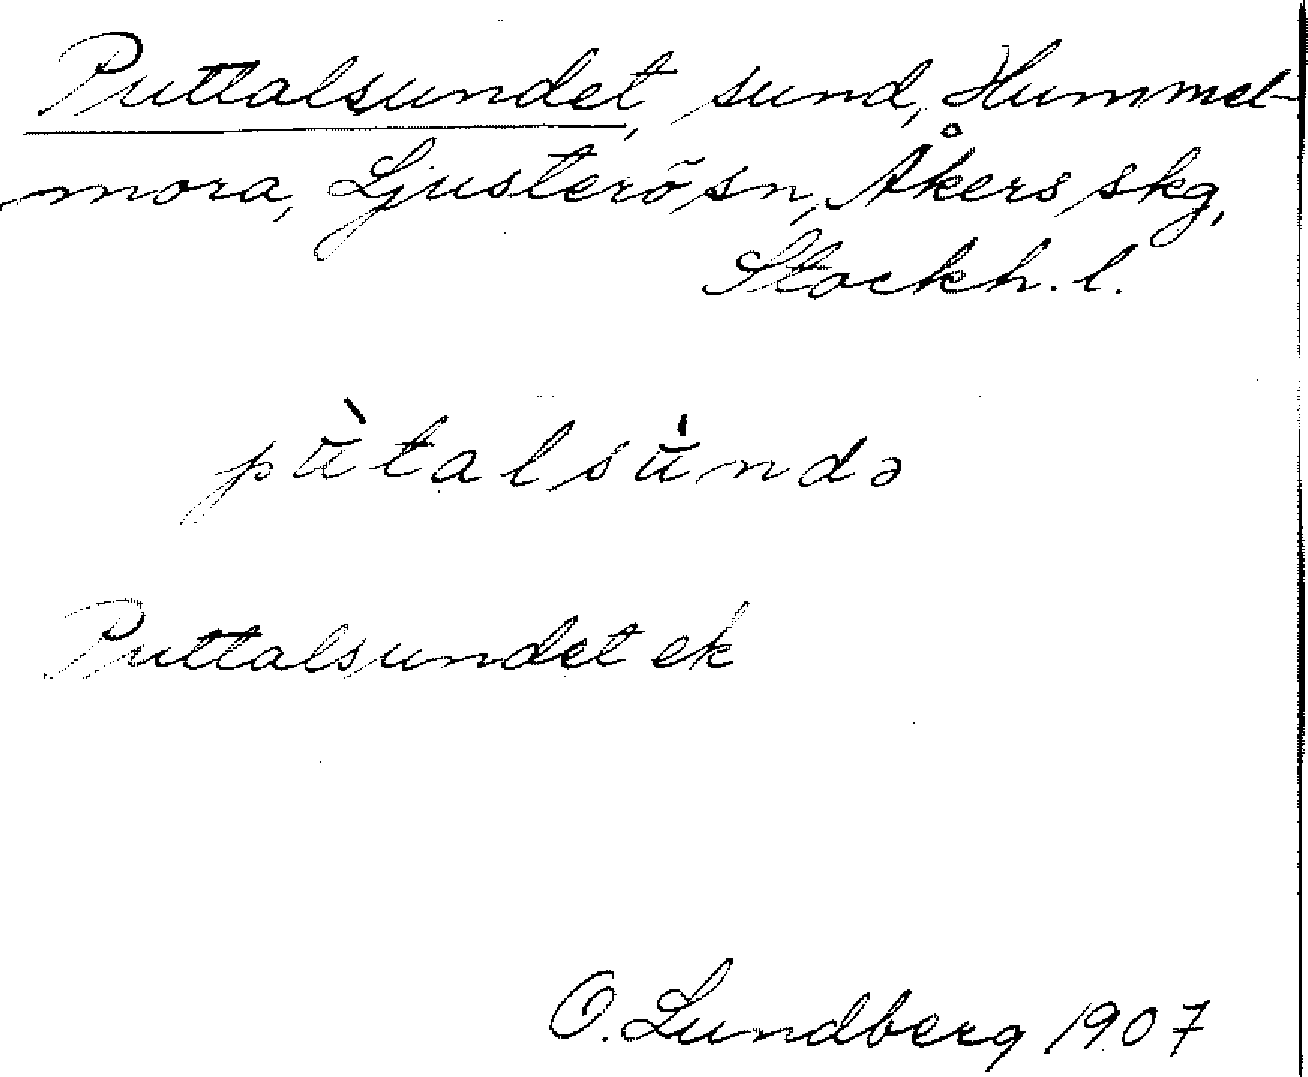 Puttalsundet, sund, Hummel-
mora, Ljusterö sn, Åkers skg,
Stockh. l.
pùtalsu̍ndə
Puttalsundet ek
O. Lundberg 1907